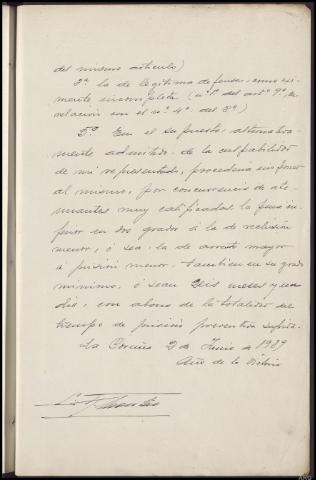 del mismo articulo)
2ª la de legitima defensa, como exi-
mente incompleta (nº 1º del artº 9º, en
relación con el nº 4º del 8º)
5º. En el supuesto, alternativa-
mente admitido, de la culpabilidad
de mi representado, procederia imponer
al mismo, por concurrencia de ate-
nuantes muy calificadas la pena in-
ferior en dos grados a la de reclusión
menor, ó sea, la de arresto mayor
a prisión menor, tambien en su grado
minimo, ó sean seis meses y un
dia, con abono de la totalidad del
tiempo de prisión preventiva sufrida.
La Coruña 2 de Junio de 1939
Año de la Victoria